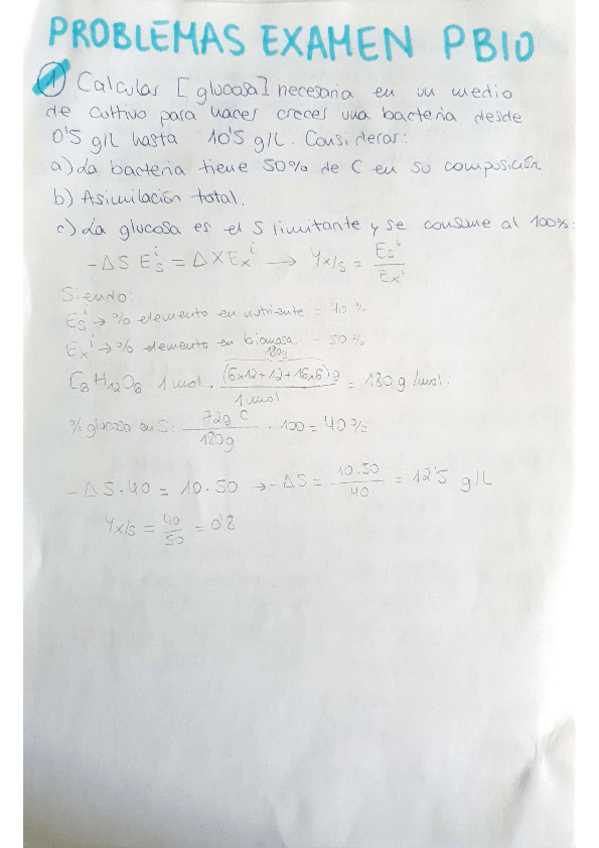 PROBLEMAS EXAMEN PBIO
1 Calcular [glucosa] necesaria en un medio
de cultivo para hacer crecer una bacteria desde
0'5 g/L hasta 10'5 g/L. Considerar:
a) La bacteria tiene 50% de C en su composición
b) Asimilación total.
c) La glucosa es el S limitante y se consume al 100%:
-ΔS E_S^i = ΔX E_X^i → Y_X/S = E_S^i / E_X^i
Siendo:
E_S^i → % elemento en nutriente = 40 %
E_X^i → % elemento en biomasa = 50%
180g
C6H12O6 1 mol · (6x12+12+16x6) g / 1 mol = 180 g/mol.
% glucosa en S: 72g C / 180g · 100 = 40%
-ΔS·40 = 10·50 → -ΔS = 10·50 / 40 = 12'5 g/L
Yx/s = 40/50 = 0'8